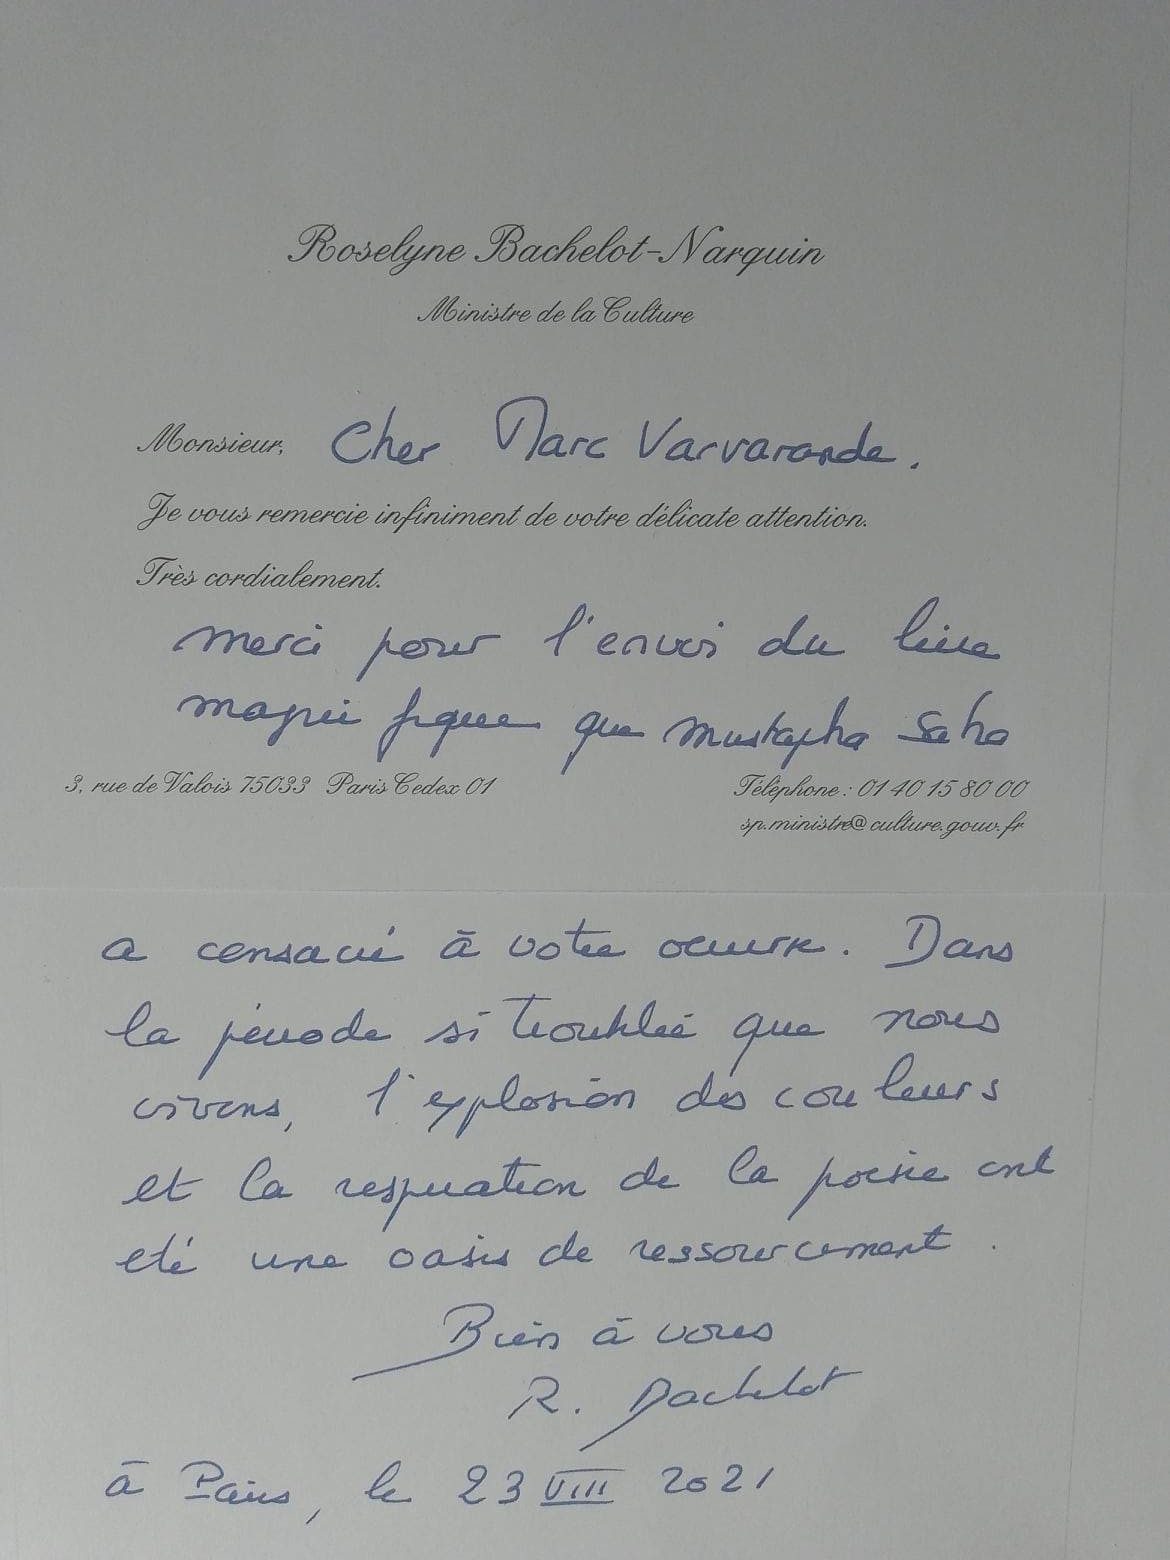 Roselyne Bachelot-Narquin
Ministre de la Culture
Monsieur, Cher Marc Varvarande.
Je vous remercie infiniment de votre délicate attention.
Très cordialement.
merci pour l'envoi du livre
magnifique que Mustapha Saha
3, rue de Valois 75033 Paris Cedex 01
Téléphone : 01 40 15 80 00
sp.ministre@culture.gouv.fr
a consacré à votre oeuvre. Dans
la période si troublée que nous
vivons, l'explosion des couleurs
et la respiration de la poésie ont
été une oasis de ressourcement.
Bien à vous
R. Bachelot
à Paris, le 23 VIII 2021